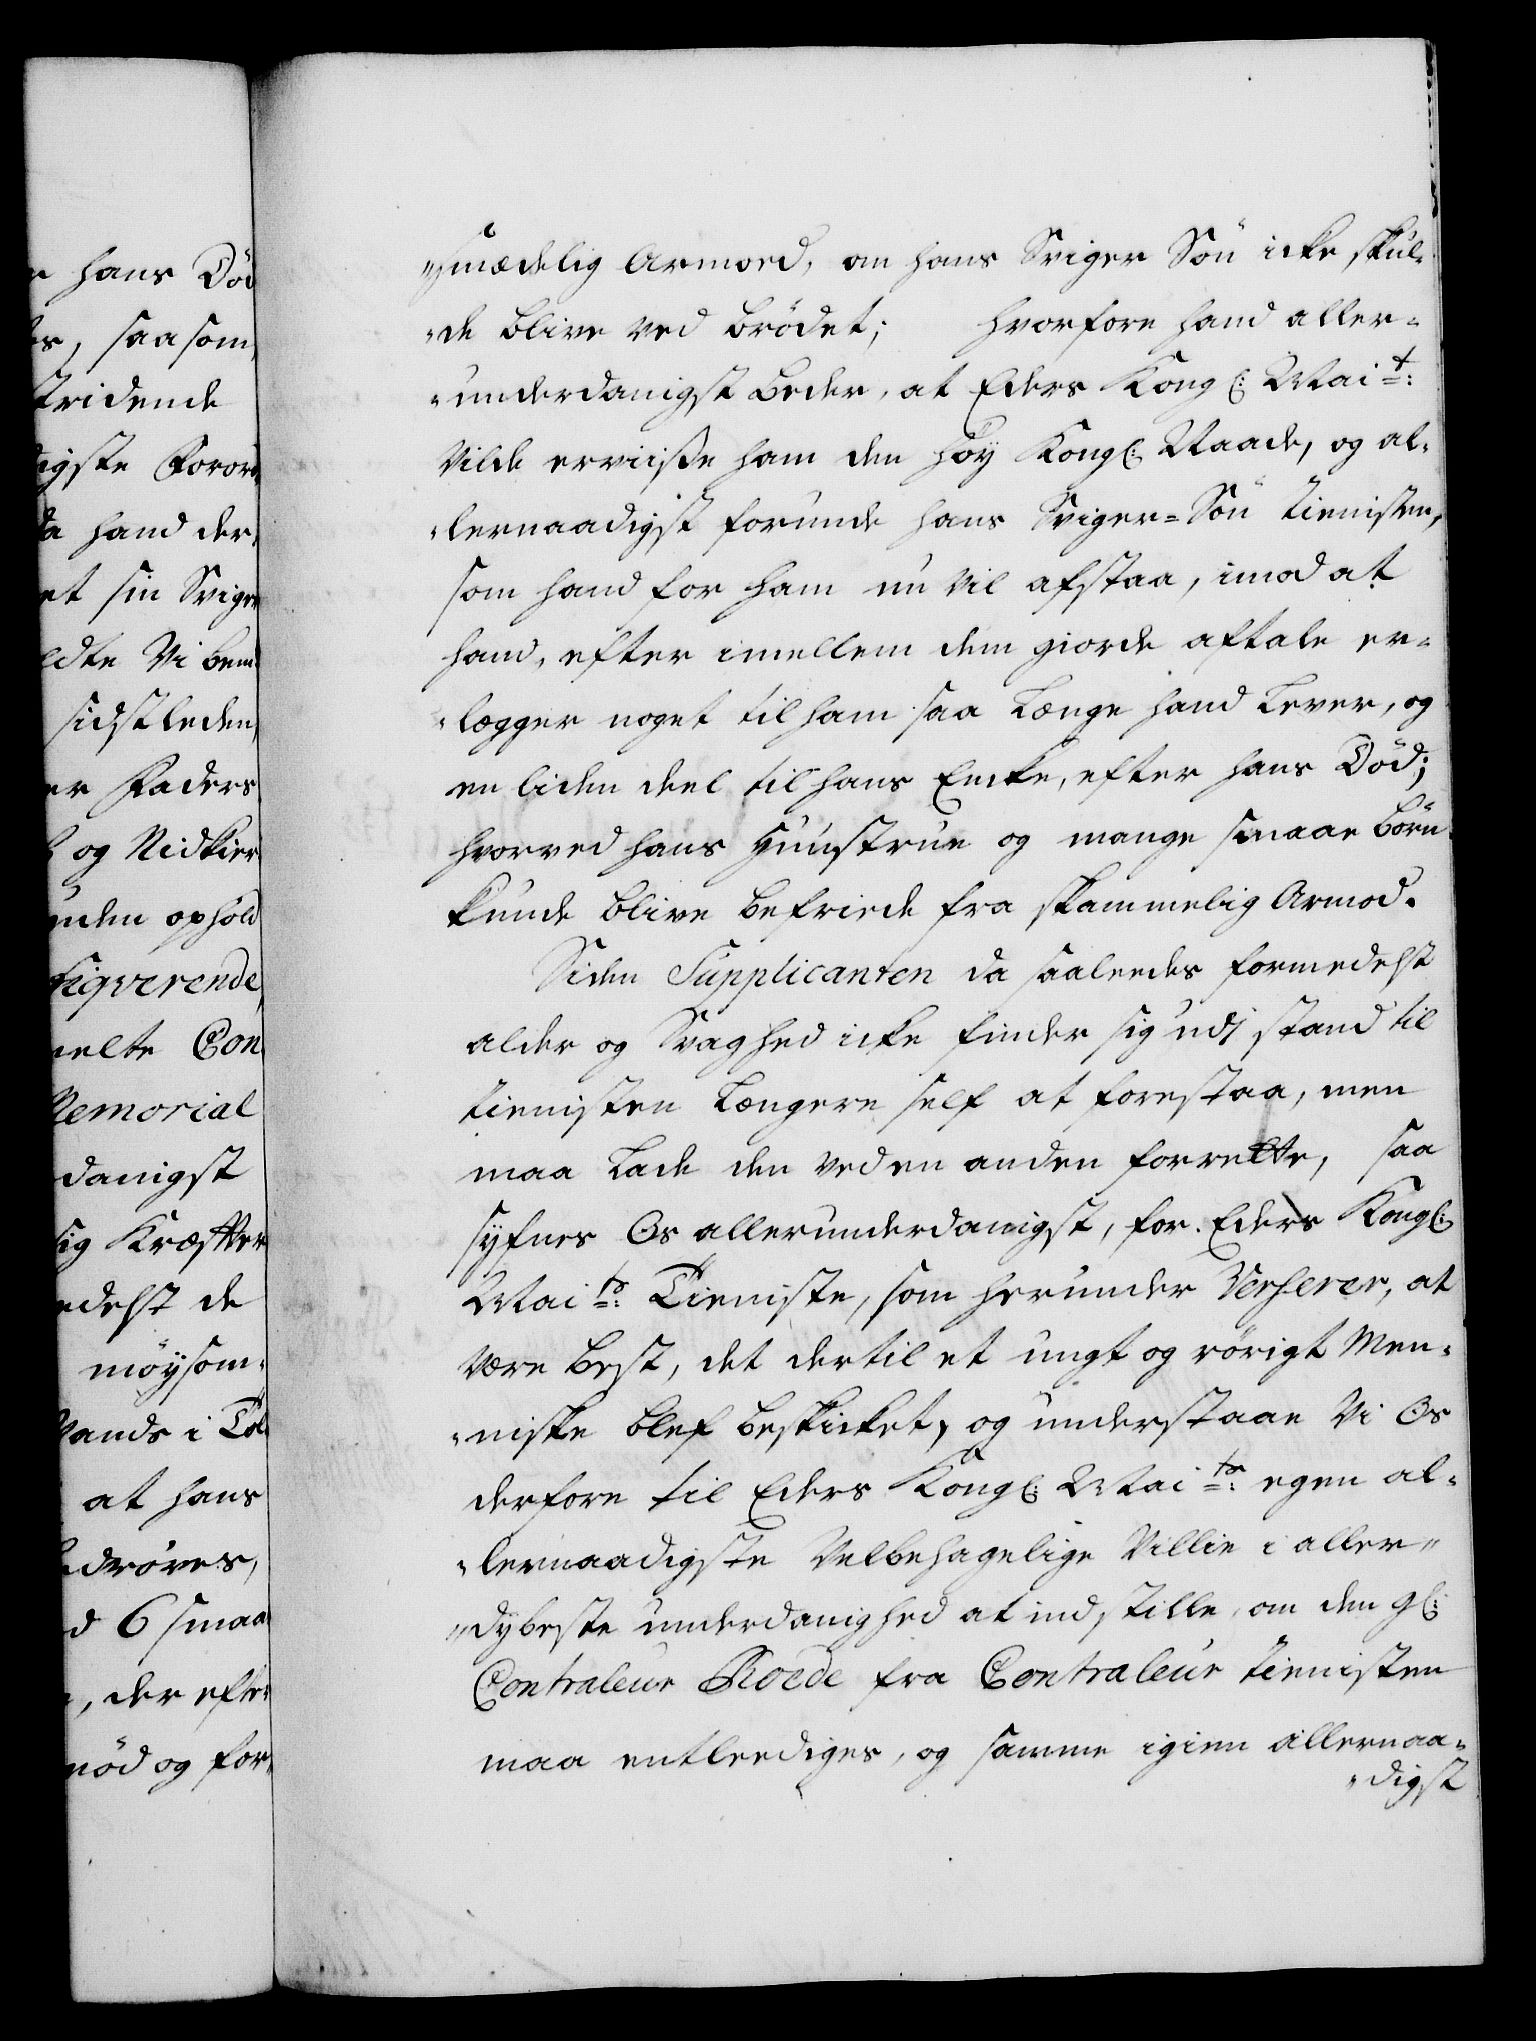 r hans Död
es, saasom,
tridende
igste Foror¬
da hand der¬
et sin Sviger
ldte Vi bem
sidstleden,
er Faders
og Nidkier
uden ophold
figverende,
melte Con
Memorial
danigst
sig Kræffter
edelst de
möysom¬
Vands i Tol
at hans
edröves,
d 6 smaa
, der efter
nöd og for¬
„smædelig Armod, om hans Sviger Sön icke skul¬
„de blive ved brödet; hvorfore hand aller=
„underdanigst beder, at Eders Kongl: Mait:
Vilde erviisse ham den höy Kongl: Naade, og al¬
„lernaadigst forunde hans Sviger=Sön tienisten,
som hand for ham nu vil afstaa, imod at
hand, efter imellem dem giorde aftale er=
„lægger noget til ham saa Længe hand Lever, og
en liden deel til hans Encke, efter hans Död;
hvorved hans Huustrue og mange smaae börn
kunde blive befriede fra skammelig Armod.
Siden Supplicanten da saaleedes formedelst
alder og Svaghed icke finder sig udj stand til
tienisten Længere self at forestaa, men
maa Lade den ved en anden forrette, saa
syfnes Os allerunderdanigst, for Eders Kongl:
Maits: Tieniste, som herunder Verserer, at
være best, det dertil et ungt og rörigt Men¬
„niske blef beskicket, og understaae Vi Os
derfore til Eders Kongl: Maits: egen al¬
„lernaadigste Velbehagelige Villie i aller„
„dybeste underdanighed at indstille, om den gl:
Contraleur Roede fra Contraleur tienisten
maa entleediges, og samme igien allernaa=
„digst